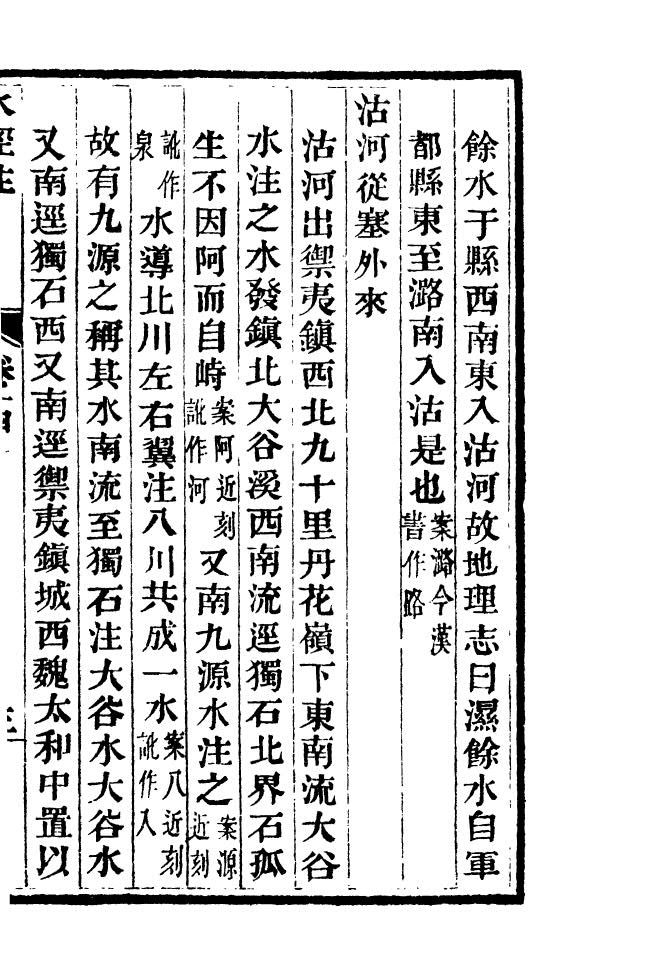 餘水于縣西南東入沽河故地理志曰濕餘水自軍
都縣東至潞南入沽是也案潞今漢書作路
沽河從塞外來
沽河出禦夷鎮西北九十里丹花嶺下東南流大谷
水注之水發鎮北大谷溪西南流逕獨石北界石孤
生不因阿而自峙案阿近刻訛作河又南九源水注之案源近刻
訛作泉水導北川左右翼注八川共成一水案八近刻訛作入
故有九源之稱其水南流至獨石注大谷水大谷水
又南逕獨石西又南逕禦夷鎮城西魏太和中置以
水經注 卷十四 三